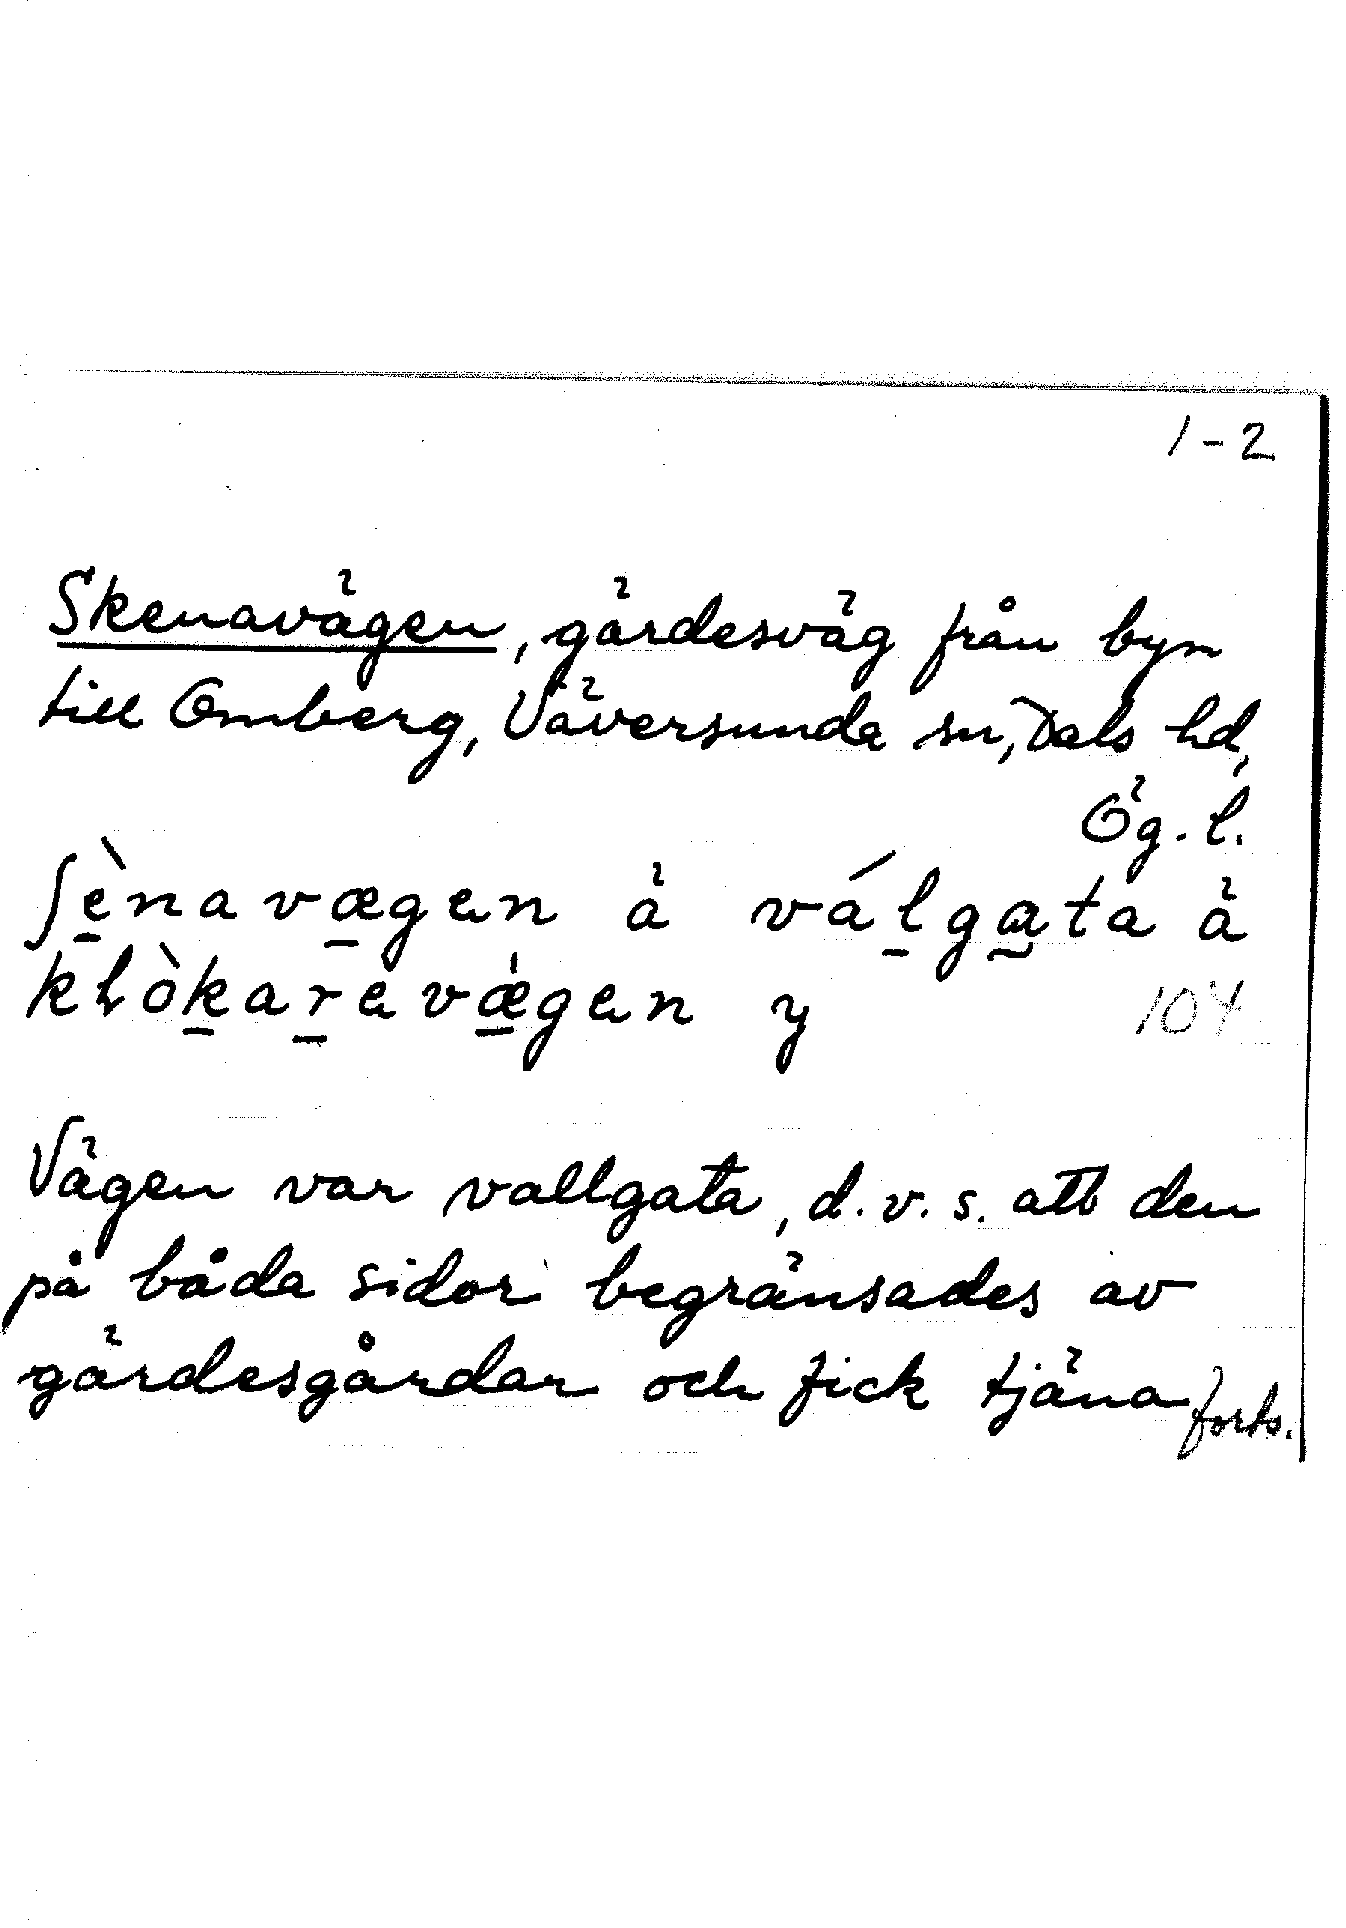 1-2
Skenavägen, gärdesväg från byn
till Omberg, Väversunda sn, Dals hd,
Ög. l.
ʃè̠navæ̠gen ä vá l̠ga̰ta ä
klòk̠ar̠evǽ̠gen y
104
Vägen var vallgata, d.v.s. att den
på båda sidor begränsades av
gärdesgårdar och fick tjäna forts.